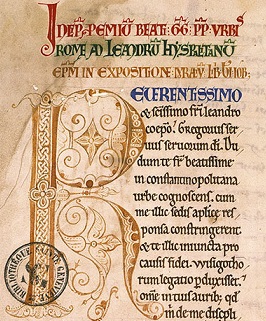 INCIP PEMIŪ BEATI GG PP URBIS
ROME AD LEANDRŪ HYSPELENSĒ
EPM IN EXPOSITIONE MRAVI LIBI IOB
REUERENTISSIMO
& scissimo fri leandro
coepo. Gregorius ser
uus seruorum di. Du
dum te fr beatissime
in constantinopolitana
urbe cognoscens. cum
me illic sedis aplice res
ponsa constringerent.
& te illic iniuncta pro
causis fidei uuisigotho
rum legatio pduxisset.
omne in tuis aurib; qd
m de me disceph